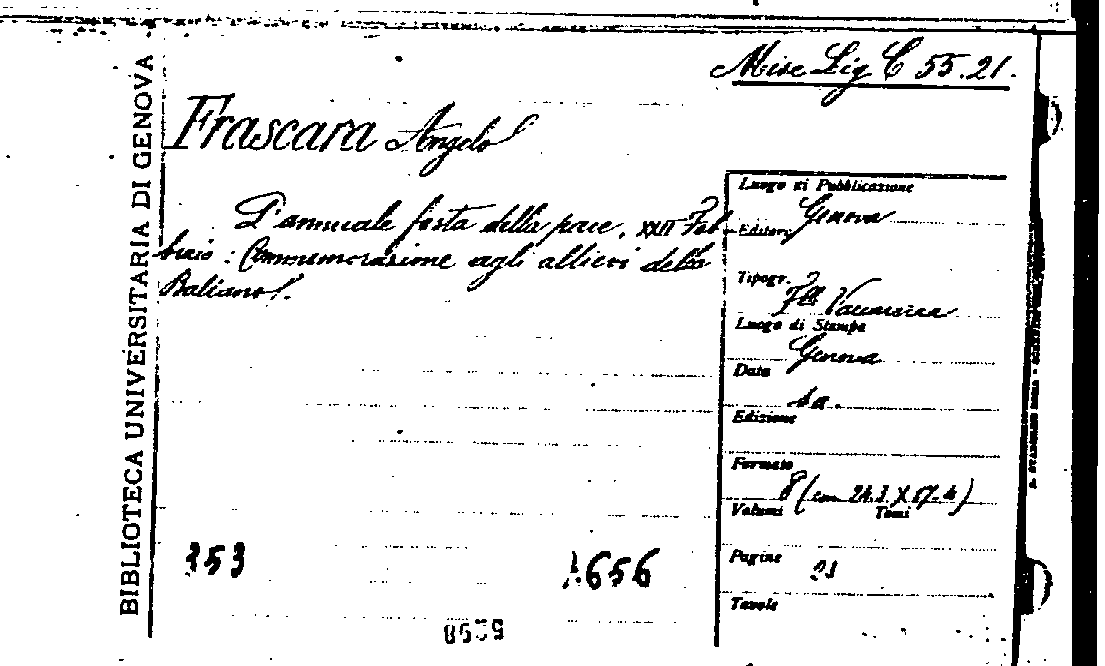 Misc Lig C 55.21.
BIBLIOTECA UNIVERSITARIA DI GENOVA
Frascara Angelo
L'annuale festa della pace, XXII Feb
braio : Commemorazione agli allievi della
Baliano.
Luogo di Pubblicazione
Genova
Editore
Tipogr.
Flli
Luogo di Stampa
Genova
Data
s.a.
Edizione
Formato
8 (cm 24.3 X 17.4)
Volumi Tomi
Pagine
21
Tavole
353
1656